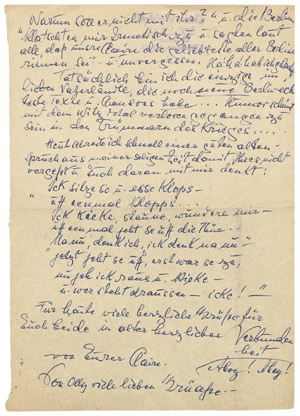 "Warum soll er nicht mit ihr?" u. die Berliner
klatschten wie
alle, dass unsere Claire die aller Berlinerinnen
sei - u. unvergessen. Ha ha ha
Tatsächlich bin ich die einzige im
lieben Vaterlande, die noch Berlin-
Texte u. Chansons habe... Humor scheint
mit dem Witz total verloren gegangen zu
sein in den Trümmern des Krieges....
Heut schreib ich schnell einen guten alten
Spruch aus seligen Zeit damit Ihr es nicht
vergesst u. Euch daran mit mir denkt!
"Ick sitze so u. esse Klops-
uff eenmal kloppt's...
Ick kieke, staune, wundre mir-
uff eenmal jeht se uff die Thüre...
Nanu, denk ick, ick denk nanu-
jetzt jeht se uff, erst war se zu.
un jeh ick raus u. kieke-
u. wer steht draussen - icke! -"
Für heute viele herzliche Grüsse für
Euch beide in alter herzlicher Verbundenheit
Ahoy! Ahoy!
von Eurer Claire.
Von Olly viele lieben Grüsse...